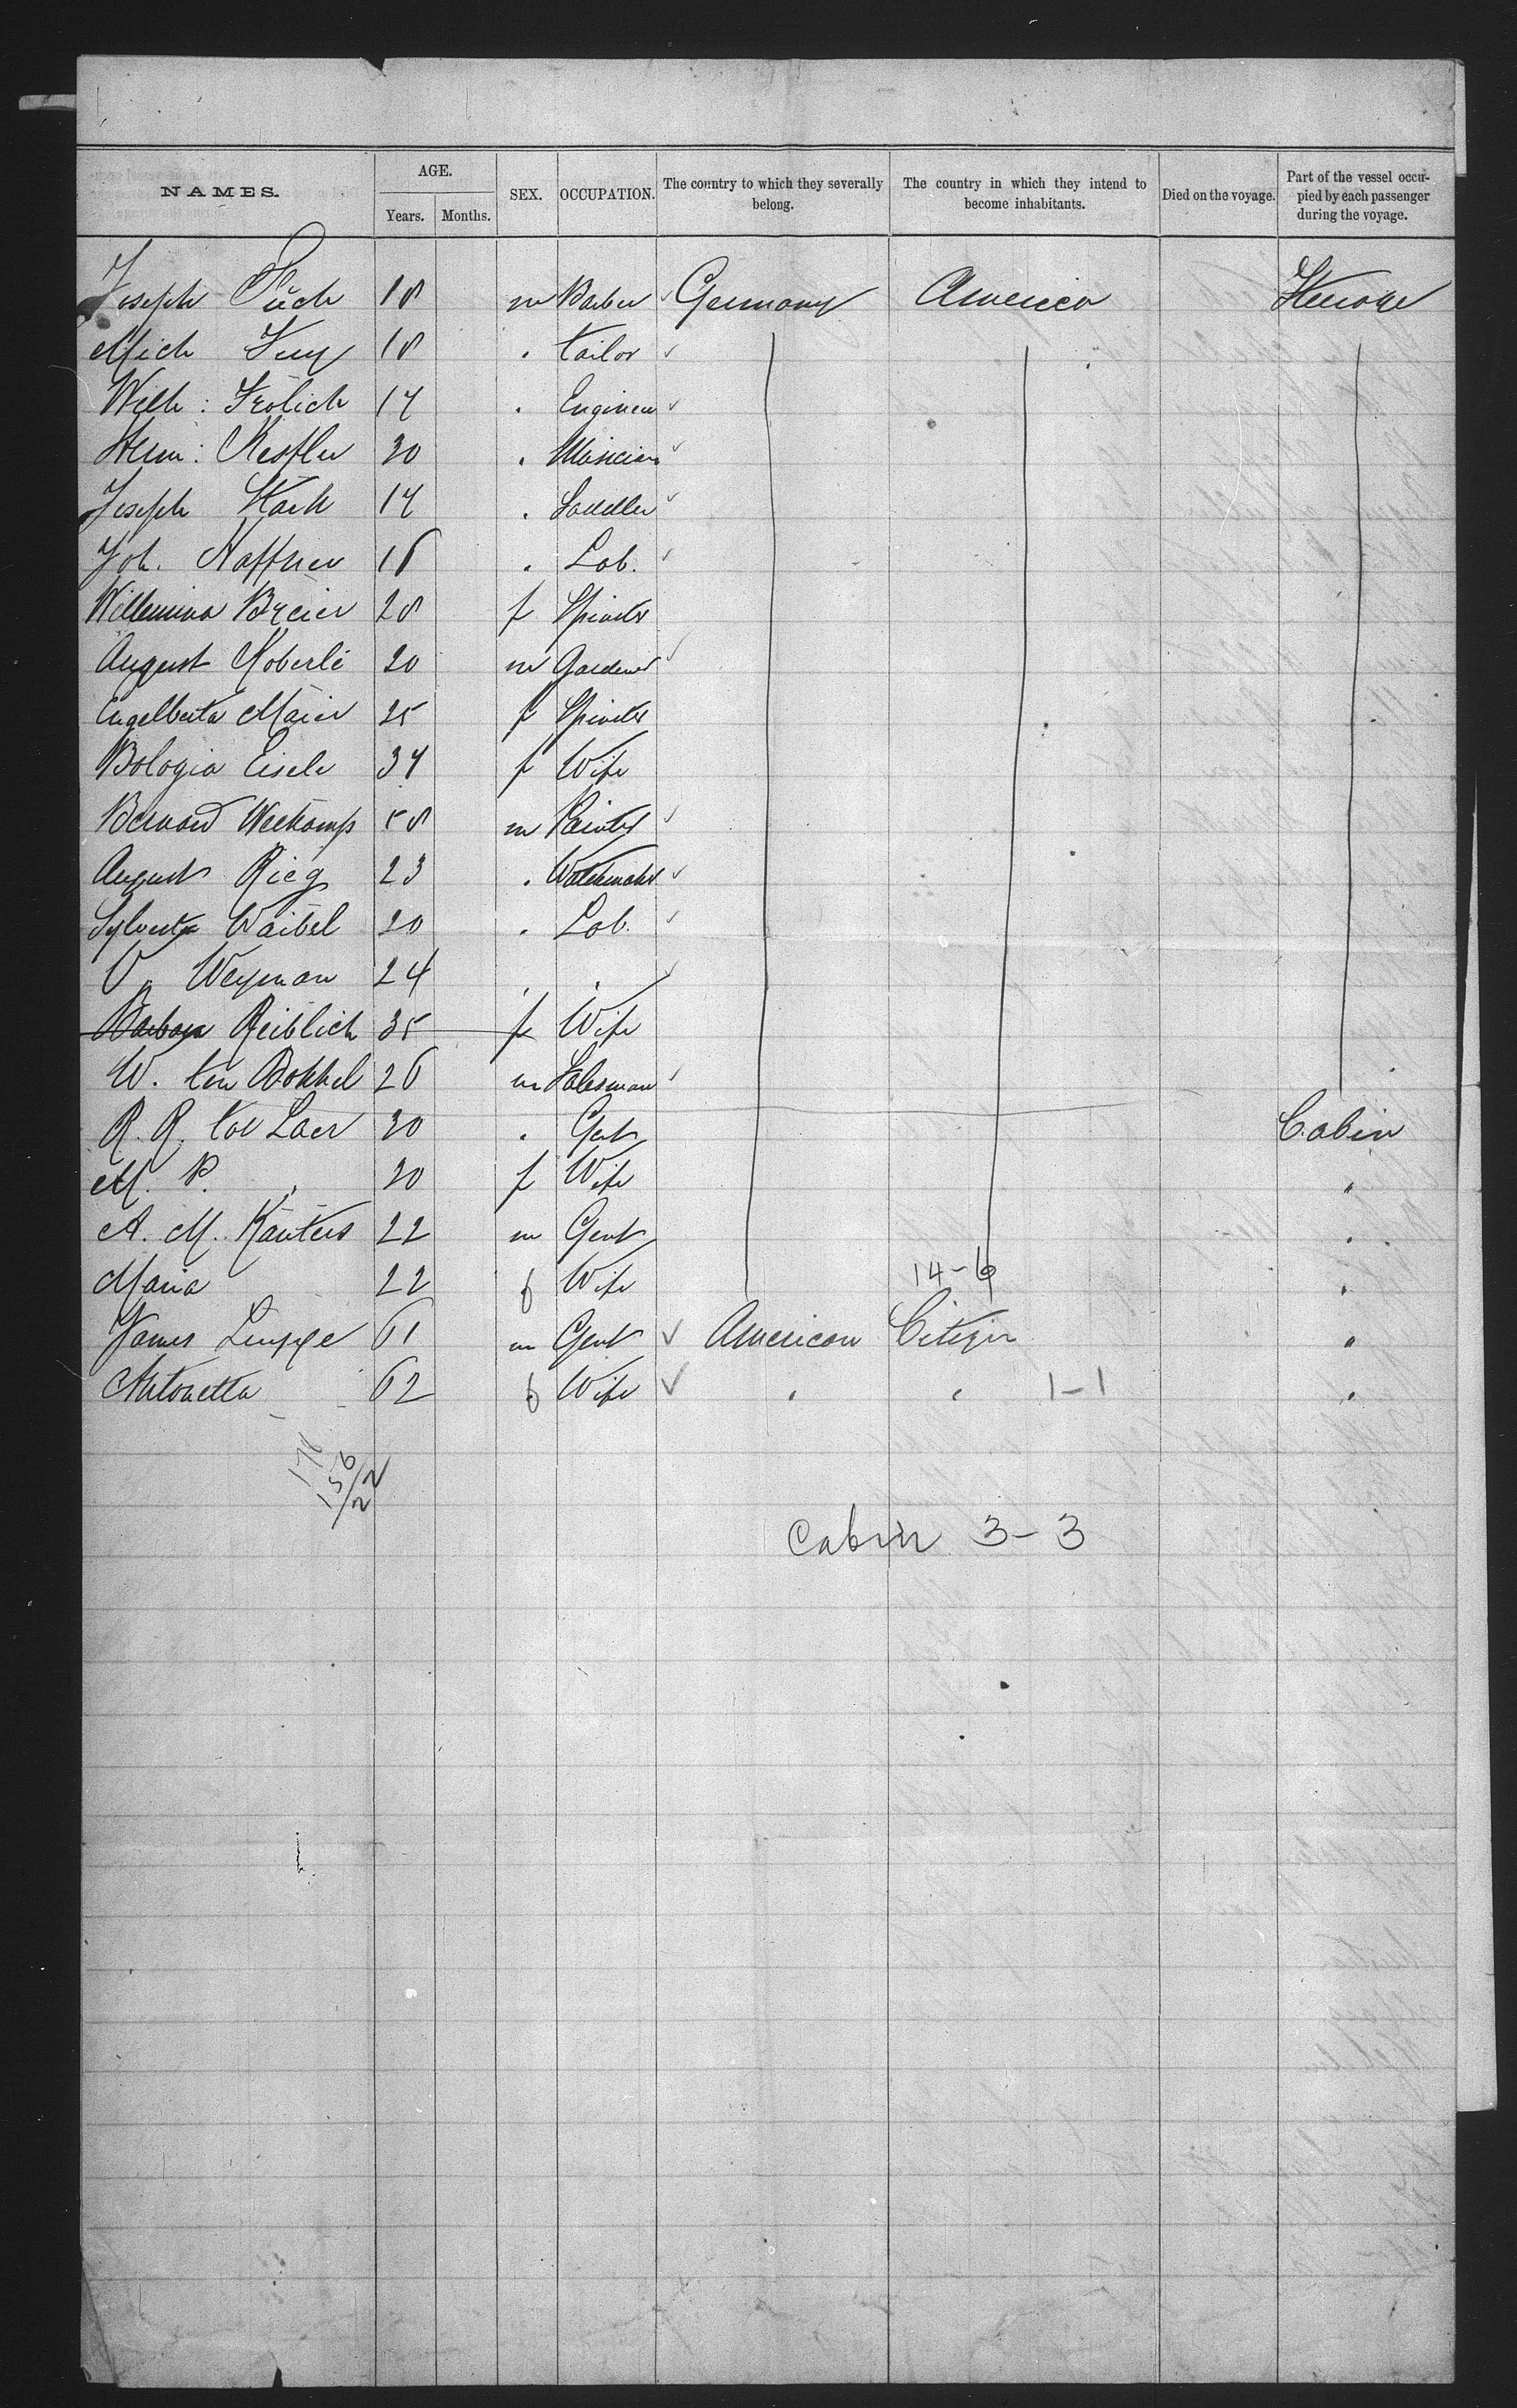 NAMES. AGE. Years. Months. SEX. OCCUPATION. The country to which they severally belong. The country in which they intend to become inhabitants. Died on the voyage. Part of the vessel occupied by each passenger during the voyage.
Joseph 18 m Barber Germany America Steerage
Mich 18 " Tailor
Wilh: Frölich 17 " Engineer
Herm: Kessler 30 " Musician
Joseph Stark 17 " Saddler
Joh. Haffner 16 " Lab.
Willemina Breier 28 f Spinster
August Koberle 20 m Gardener
Engelberta Maier 25 f Spinster
Bologia Eisele 34 f Wife
Bernard Weekamp 58 m Painter
August Rieg 23 " Watchmaker
Sylvester Waibel 20 " Lab.
V. Weyman 24 " "
Barbara Reiblich 35 f Wife
W. ten Bokkel 26 m Salesman
R. R. toe Laer 30 " Gent Cabin
M. P. " 30 f Wife "
A. M. Kanters 22 m Gent "
Maria 22 f Wife 14-6 "
James Gent 61 m American Citizen "
Antonetta 62 f Wife " " 1-1 "
156
22
Cabin 3-3